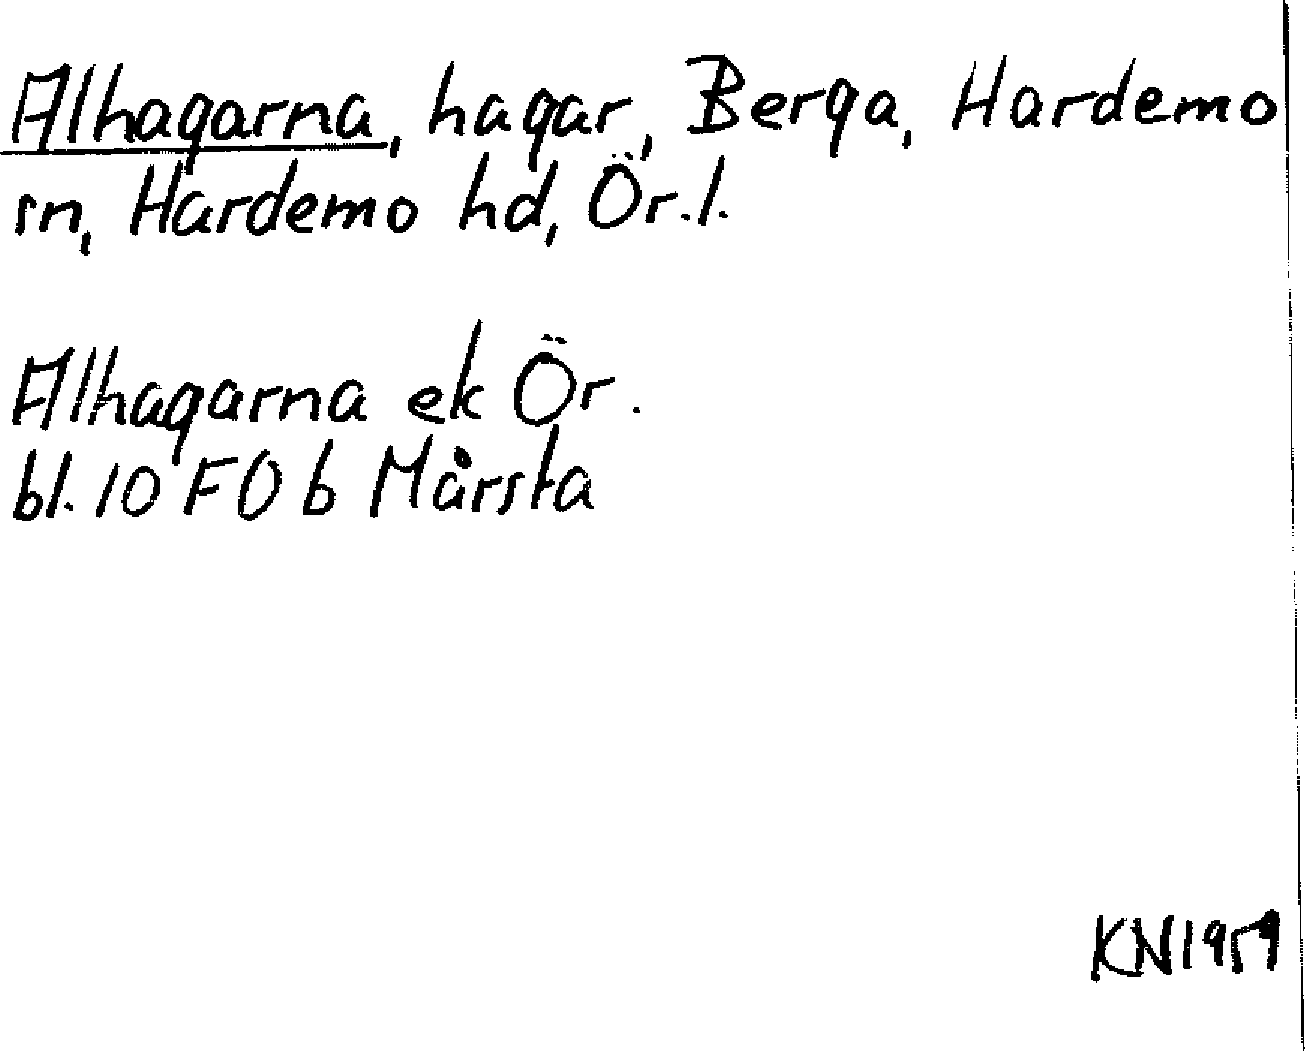 Alhagarna, hagar, Berga, Hardemo
sn, Hardemo hd, Ör.l.
Alhagarna ek Ör.
bl. 10 F 0 b Mårsta
KN 1959